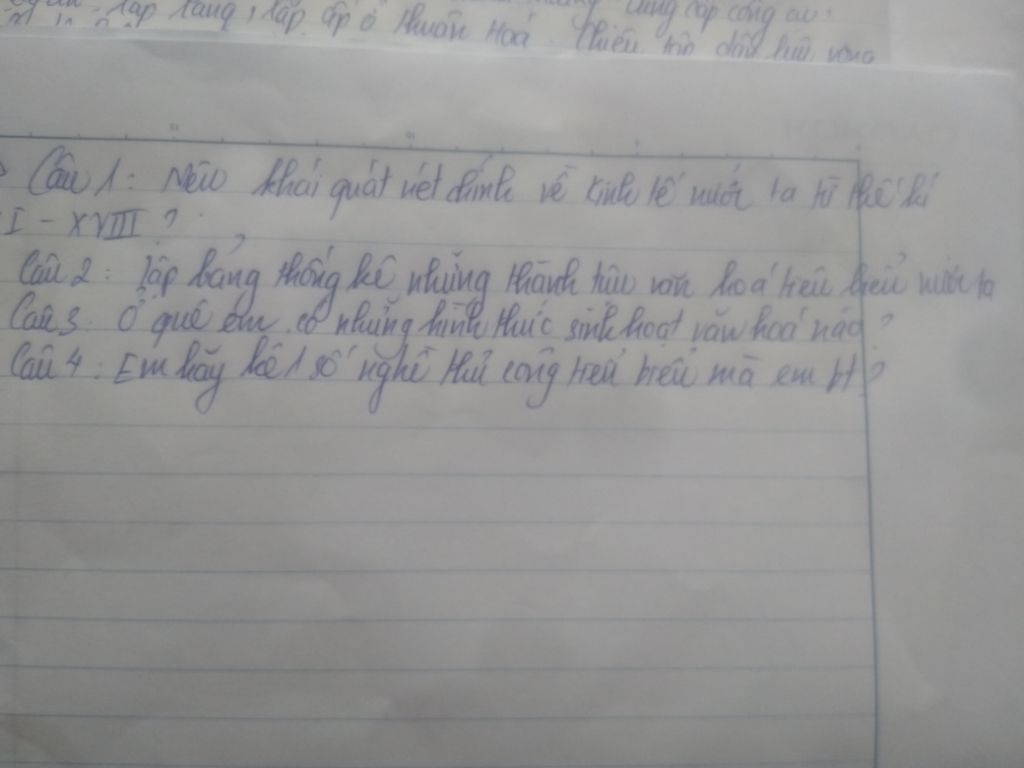 lập làng, lập ấp ở Thuận Hoá. Chiêu tập dân lưu vong
Câu 1: Nêu khái quát nét chính về kinh tế nước ta từ thế kỉ
I - XVIII ?
Câu 2: Lập bảng thống kê những thành tựu văn hoá tiêu biểu nước ta
Câu 3: Ở quê em có những hình thức sinh hoạt văn hoá nào?
Câu 4: Em hãy kể 1 số nghề thủ công tiêu biểu mà em bt?